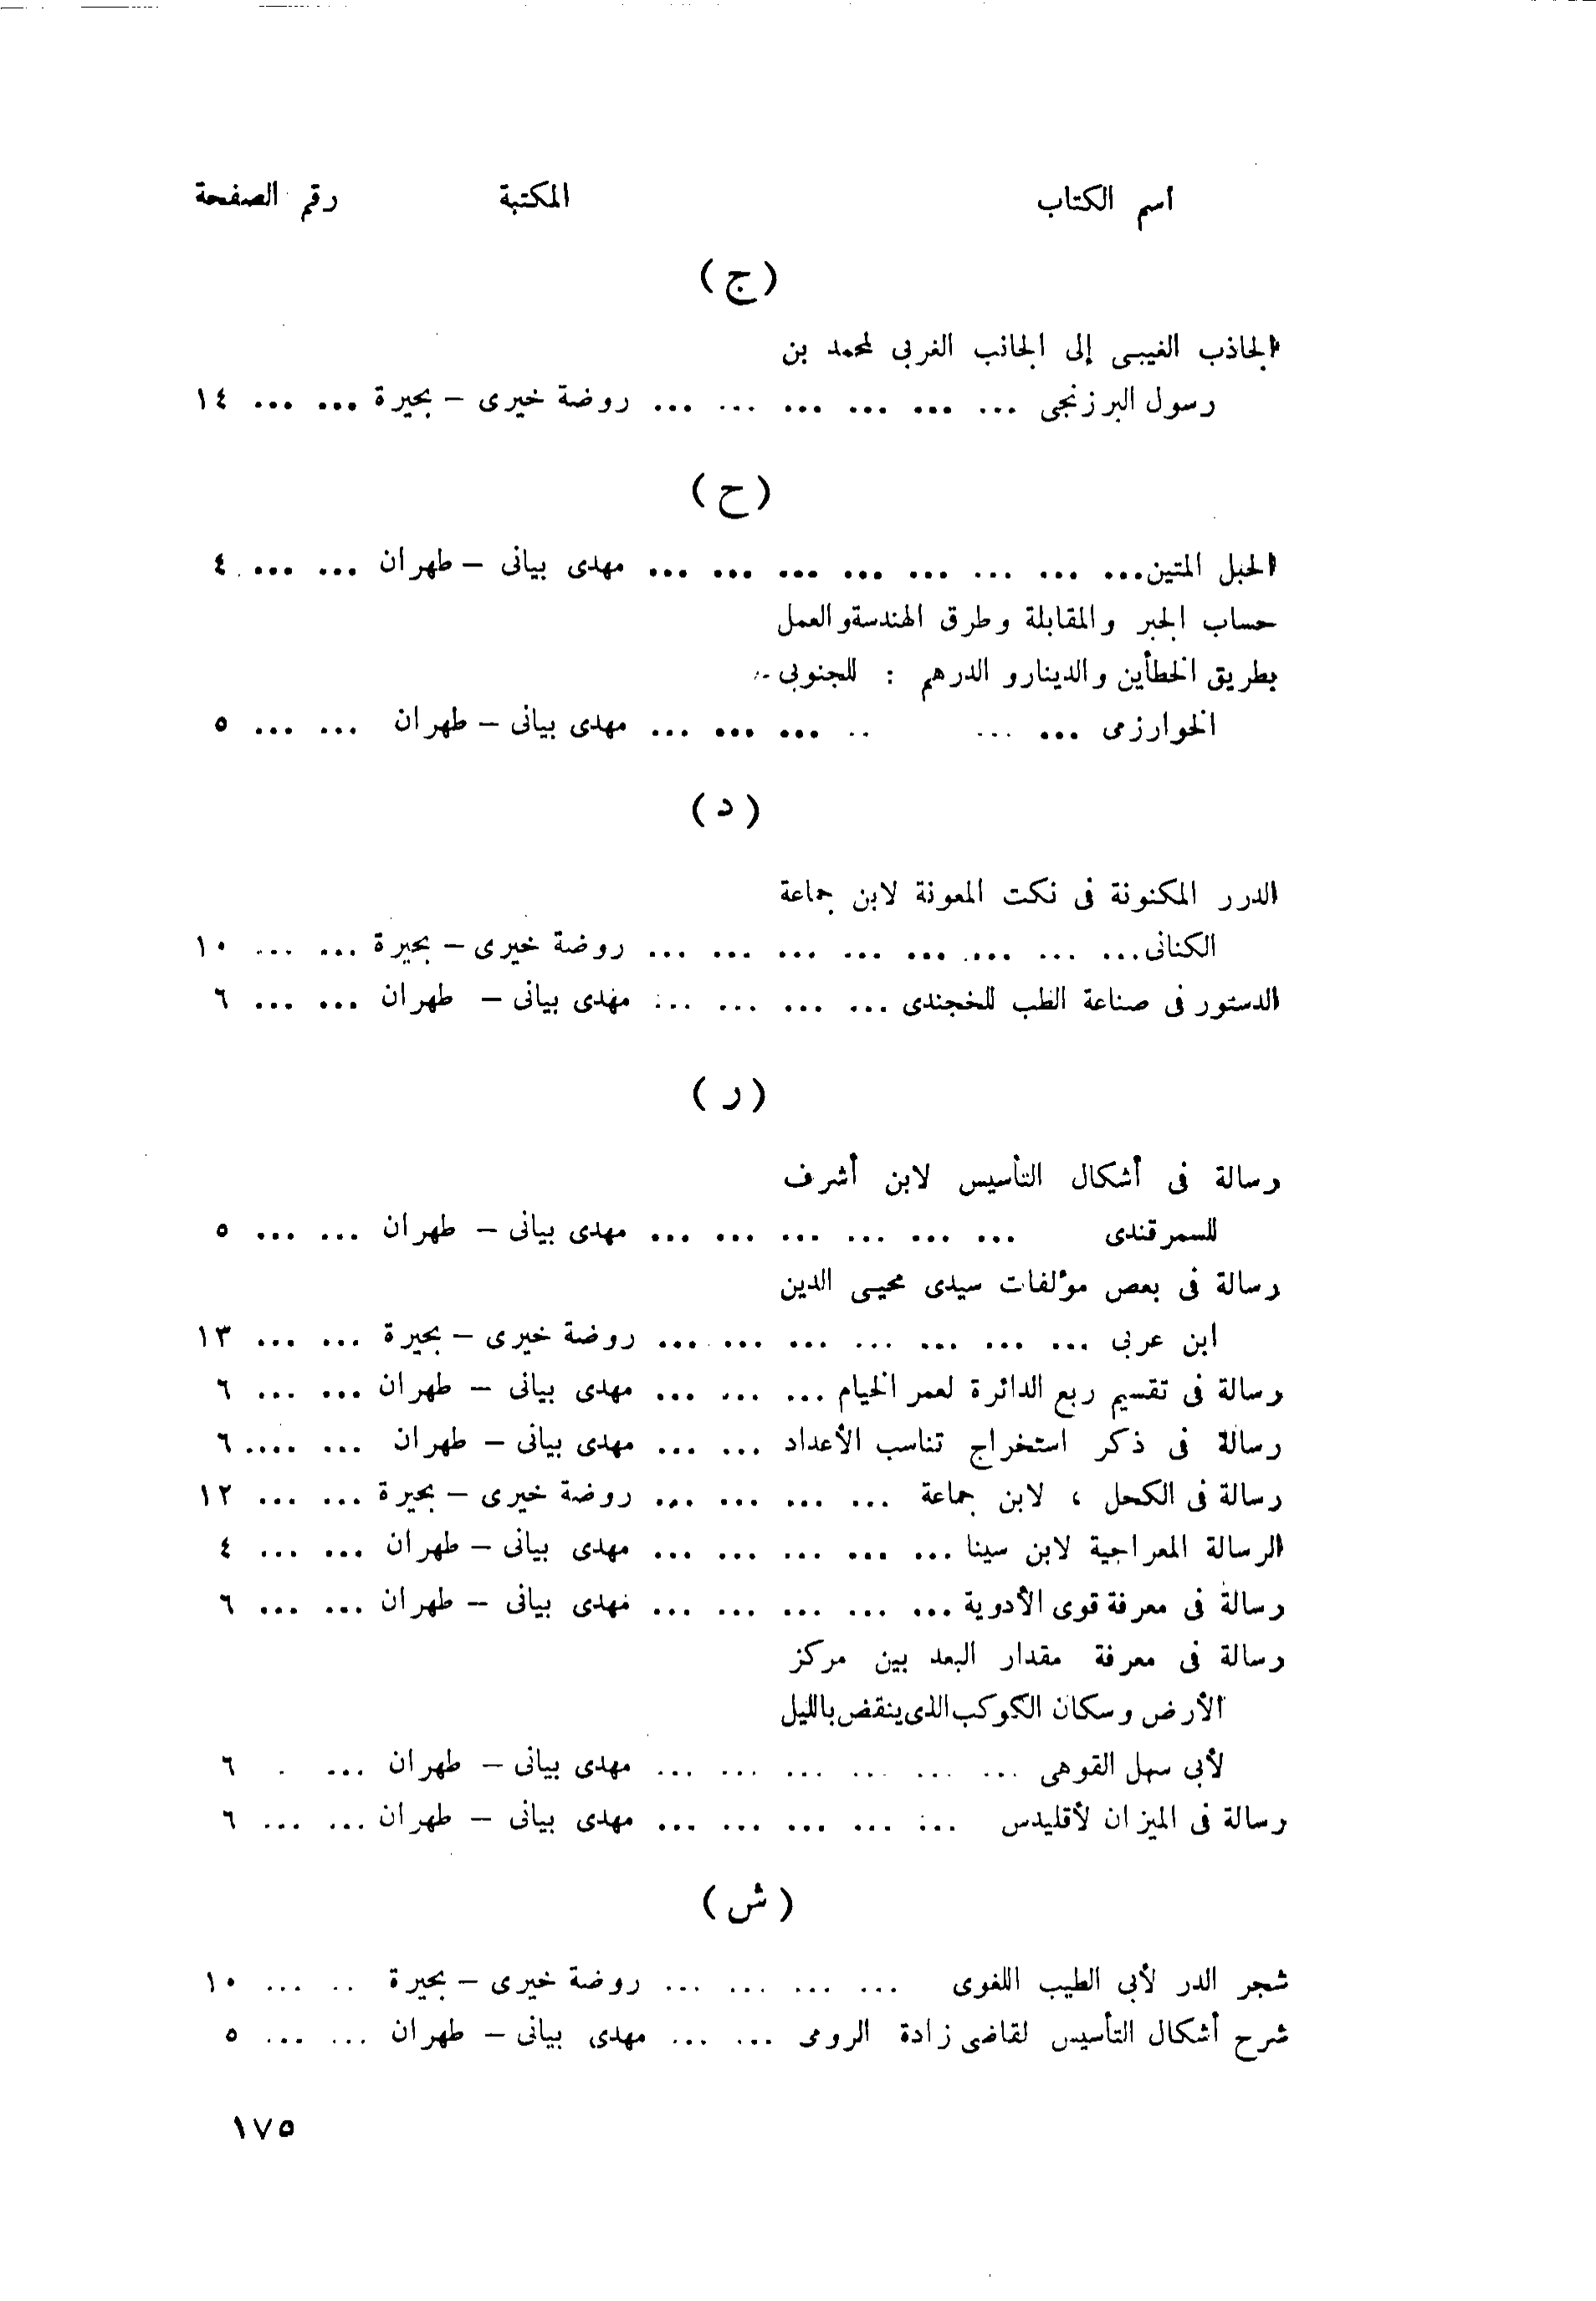 اسم الكتاب المكتبة رقم الصفحة
(ج)
الجاذب الغيبى إلى الجانب الغربى لمحمد بن
رسول البرزنجى ... ... ... ... ... ... روضة خيرى – بحيرة ... ... ١٤
(ح)
الحبل المتين ... ... ... ... ... ... ... ... مهدى بيانى – طهران ... ... ٤
حساب الجبر والمقابلة وطرق الهندسة والعمل
بطريق الخطأين والدينار والدرهم : للجنوبى
الخوارزمى ... ... .. ... ... ... مهدى بيانى – طهران ... ... ٥
(د)
الدرر المكنونة فى نكت المعونة لابن جماعة
الكنانى ... ... ... ... ... ... ... ... روضة خيرى – بحيرة ... ... ١٠
الدستور فى صناعة الطب للخجندى ... ... ... ... مهدى بيانى – طهران ... ... ٦
(ر)
رسالة فى أشكال التأسيس لابن أشرف
للسمرقندى ... ... ... ... ... ... مهدى بيانى – طهران ... ... ٥
رسالة فى بعص مؤلفات سيدى محيى الدين
ابن عربى ... ... ... ... ... ... ... روضة خيرى – بحيرة ... ... ١٣
رسالة فى تقسيم ربع الدائرة لعمر الخيام ... ... ... مهدى بيانى – طهران ... ... ٦
رسالة فى ذكر استخراج تناسب الأعداد ... ... مهدى بيانى – طهران ... .... ٦
رسالة فى الكحل ، لابن جماعة ... ... ... ... روضة خيرى – بحيرة ... ... ١٢
الرسالة المعراجية لابن سينا ... ... ... ... ... مهدى بيانى – طهران ... ... ٤
رسالة فى معرفة قوى الأدوية ... ... ... ... ... مهدى بيانى – طهران ... ... ٦
رسالة فى معرفة مقدار البعد بين مركز
الأرض وسكان الكوكب الذى ينقض بالليل
لأبى سهل القوهى ... ... ... ... ... ... مهدى بيانى – طهران ... . ٦
رسالة فى الميزان لأقليدس ... ... ... ... ... مهدى بيانى – طهران ... ... ٦
(ش)
شجر الدر لأبى الطيب اللغوى ... ... ... ... روضة خيرى – بحيرة .. ... ١٠
شرح أشكال التأسيس لقاضى زادة الرومى ... ... مهدى بيانى – طهران ... ... ٥
١٧٥